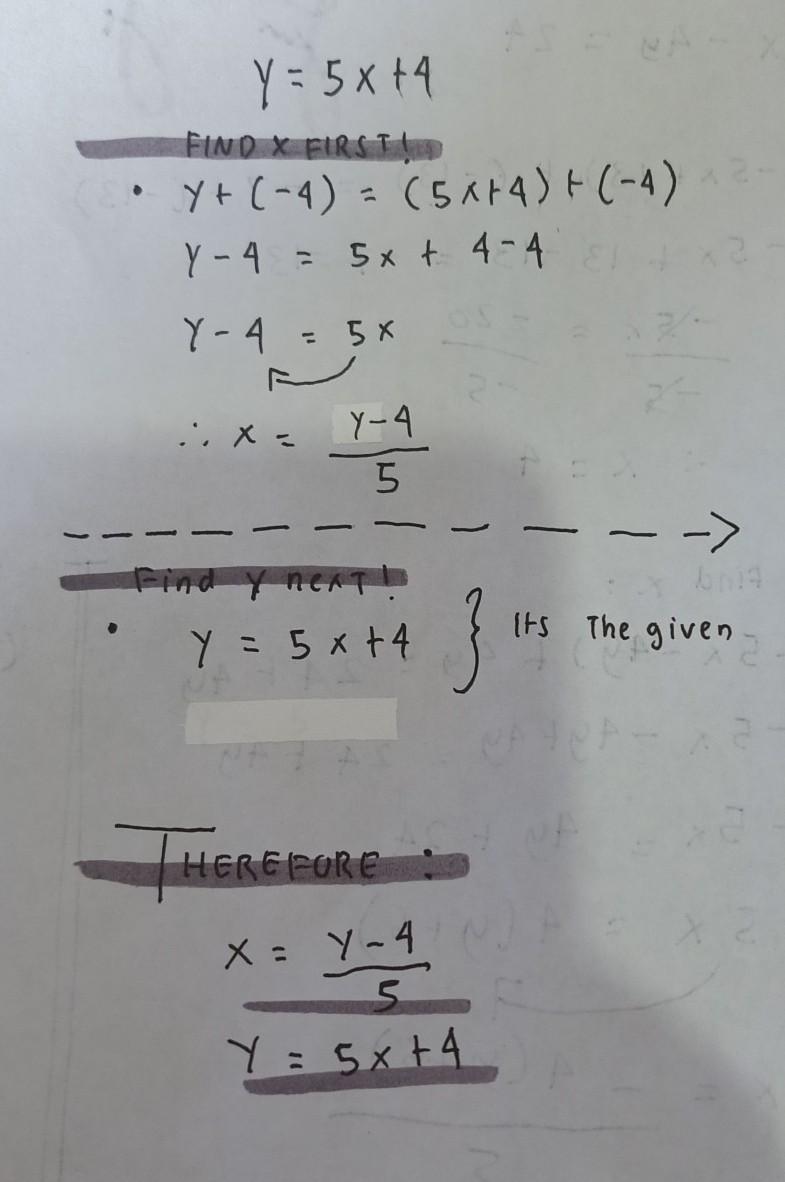 y = 5x+4
FIND X FIRST!
• y+(-4) = (5x+4)+(-4)
y-4 = 5x + 4-4
y-4 = 5x
∴ x = y-4
5
Find y next!
• y = 5x+4 } Its The given
THEREFORE :
x = y-4
5
y = 5x+4